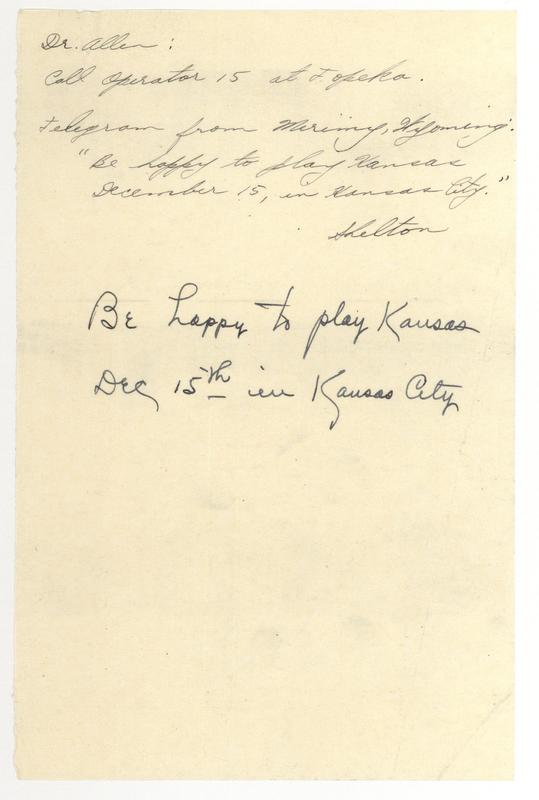 Dr. Allen:
Call Operator 15 at Topeka.
Telegram from Meriny, Wyoming.
"Be happy to play Kansas
December 15, in Kansas City."
Shelton
Be happy to play Kansas
Dec 15th in Kansas City